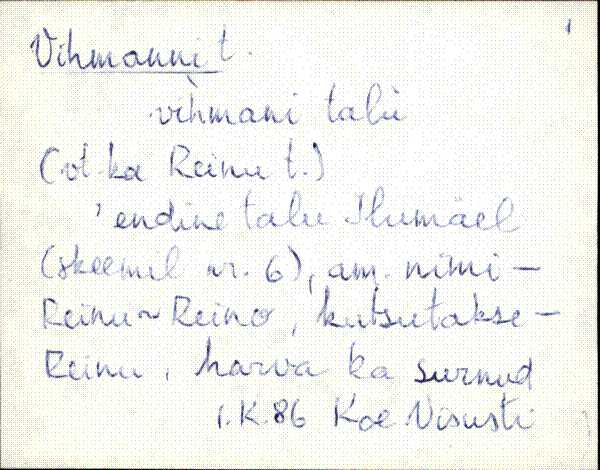 1
Vihmanni t.
vìhmani talù
(vt. ka Reinu t.)
' endine talu Ilumäel
(skeemil nr. 6), am. nimi –
Reinu ~ Reino, kutsutakse –
Reinu, harva ka surnud
I.K.86 Koe Visusti